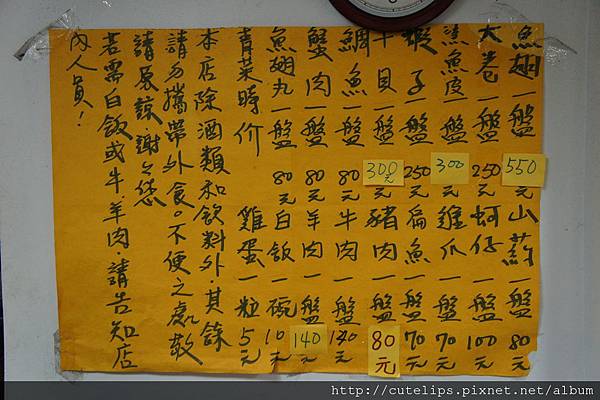 魚翅一盤 550元 山葯一盤 80元
大卷一盤 250元 蚵仔一盤 100元
鯊魚皮一盤 300 雞爪一盤 70元
蝦子一盤 250元 扁魚一盤 70元
干貝一盤 300元 豬肉一盤 80元
鯛魚一盤 80元 牛肉一盤 140元
蟹肉一盤 80元 羊肉一盤 140元
魚翅丸一盤 80元 白飯一碗 10元
青菜時价 雞蛋一粒 5元
本店除酒類和飲料外，其餘
請勿攜帶外食。不便之處敬
請原諒，謝謝您
若需白飯或牛羊肉，請告知店
內人員！
http://cutelips.pixnet.net/album